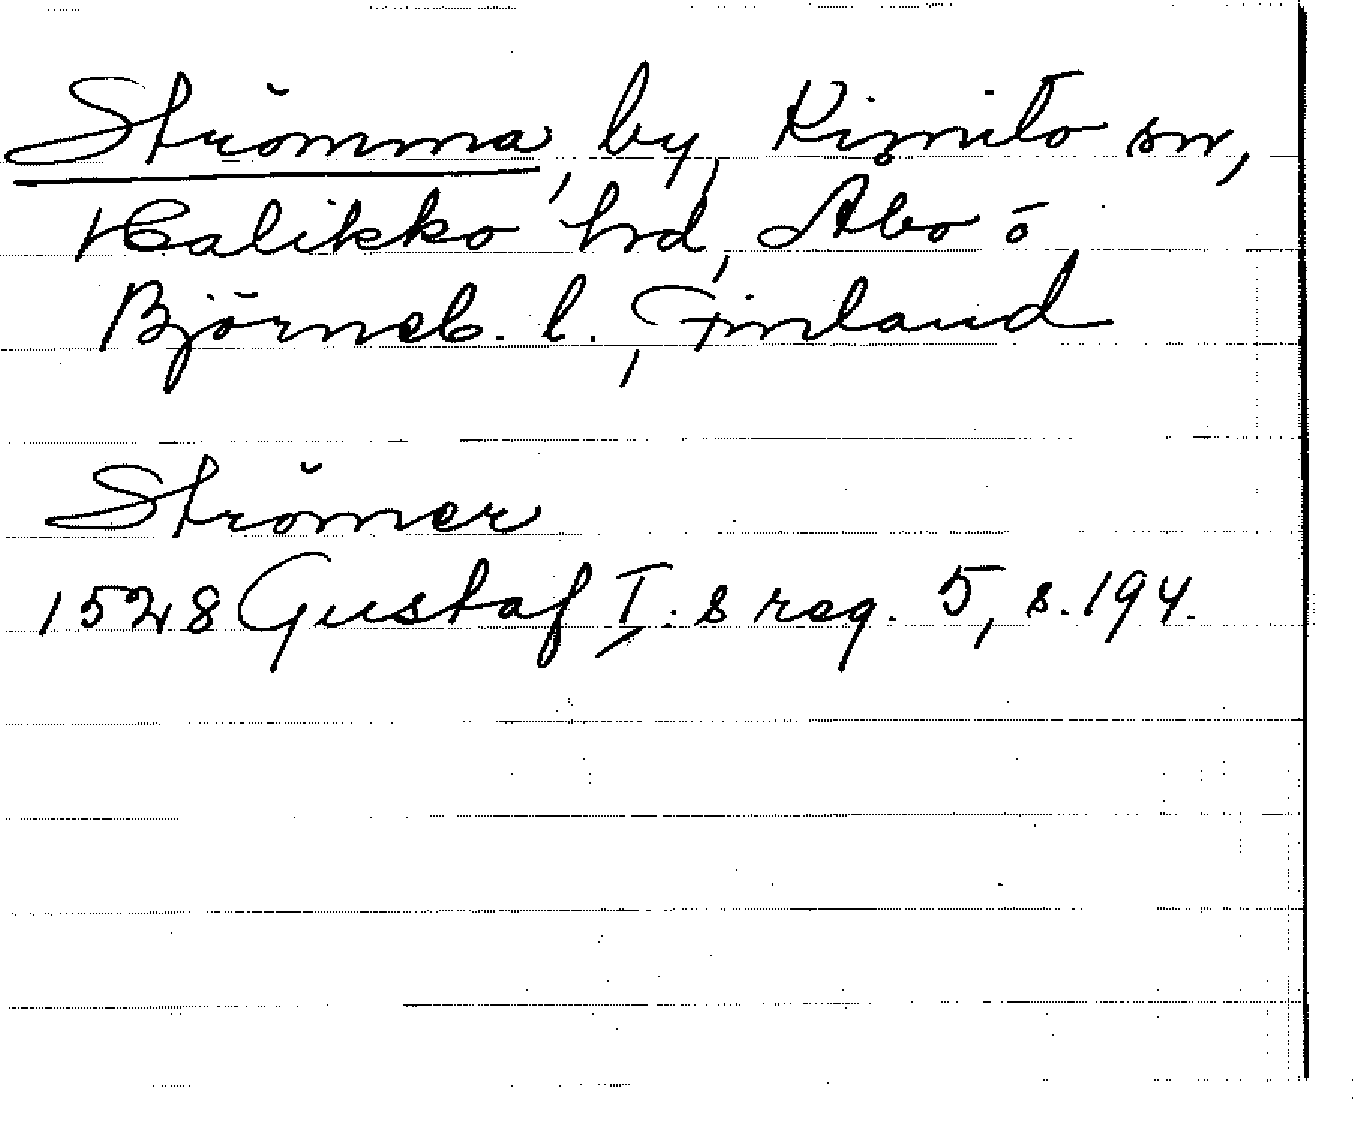 Strömma, by, Kimito sn,
Halikko hd, Åbo o
Björneb. l., Finland
Strömer
1528 Gustaf I:s reg. 5, s. 194.